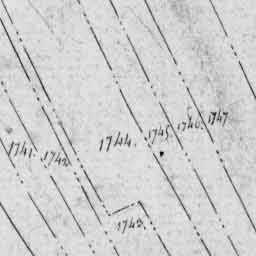 1744. 1745. 1746. 1747
1741. 1742
1743